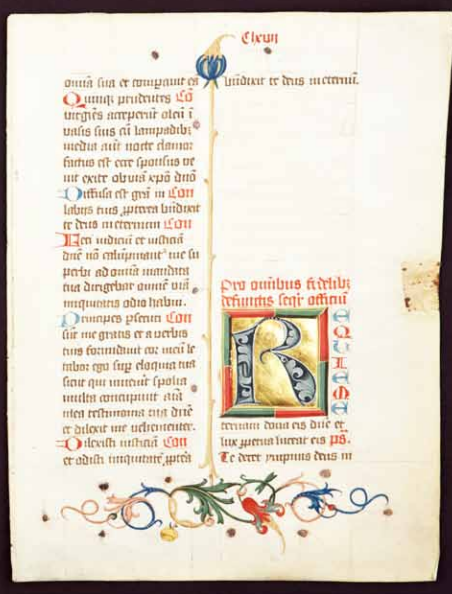 omnia sua et comparauit ea
Quinqʒ prudentes Cō
virgīēs acceperūt oleū ī
vasis suis cū lampadibʒ
media aūt nocte clamor
factus est ecce sponsus ve
nit exite obuiā xp̄o dn̄o
Diffusa est grā in Com
labijs tuis ꝓpterea bn̄dixit
te deus in eternum Com
Feci iudiciū et iusticiā
dn̄e nō calūpniant' me su
perbi ad omnia mandata
tua dirigebar omnē viā
iniquitatis odio habui.
Principes ꝑsecuti Com
sūt me gratis et a verbis
tuis formidauit cor meū le
tabor ego suꝑ eloquia tua
sicut qui inuenit spolia
multa concupiuit aīa
mea testimonia tua dn̄e
et dilexit me vehementer.
Dilexisti iusticiā Com
et odisti iniquitatē ꝓpterea
bn̄dixit te deus in eternū.
Pro omnibus fidelibʒ
defunctis seqr̄ officiū
REQUIEM E
ternam dona eis dn̄e et
lux ꝑpetua luceat eis ps.
Te decet ympnus deus in